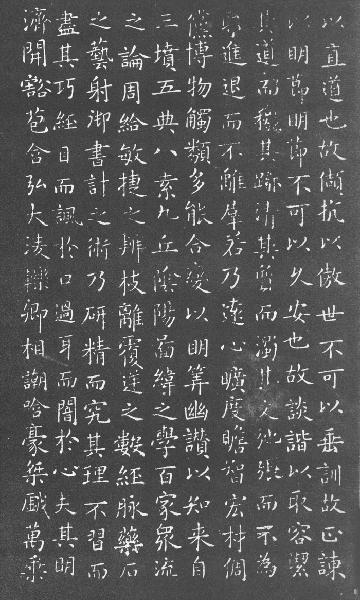 以直道也故頡抗以傲世不可以垂訓故正諫
以明節明節不可以久安也故談諧以取容潔
其道而穢其跡清其質而濁其文弛張而不為
耶進退而不離群若乃遠心曠度瞻智宏材倜
儻博物觸類多能合變以明筭幽讃以知來自
三墳五典八索九丘陰陽啚緯之學百家眾流
之論周給敏捷之辨枝離覆逆之數經脉藥石
之藝射御書計之術乃研精而究其理不習而
盡其巧經目而諷於口過耳而闇於心夫其明
濟開豁苞含弘大淩轢卿相謿哈豪桀戲萬乘